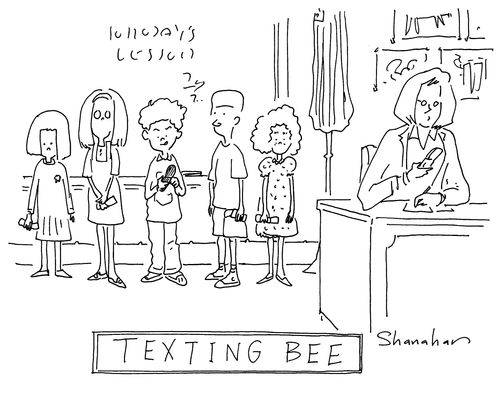 LESSON
TEXTING BEE
Shanahan